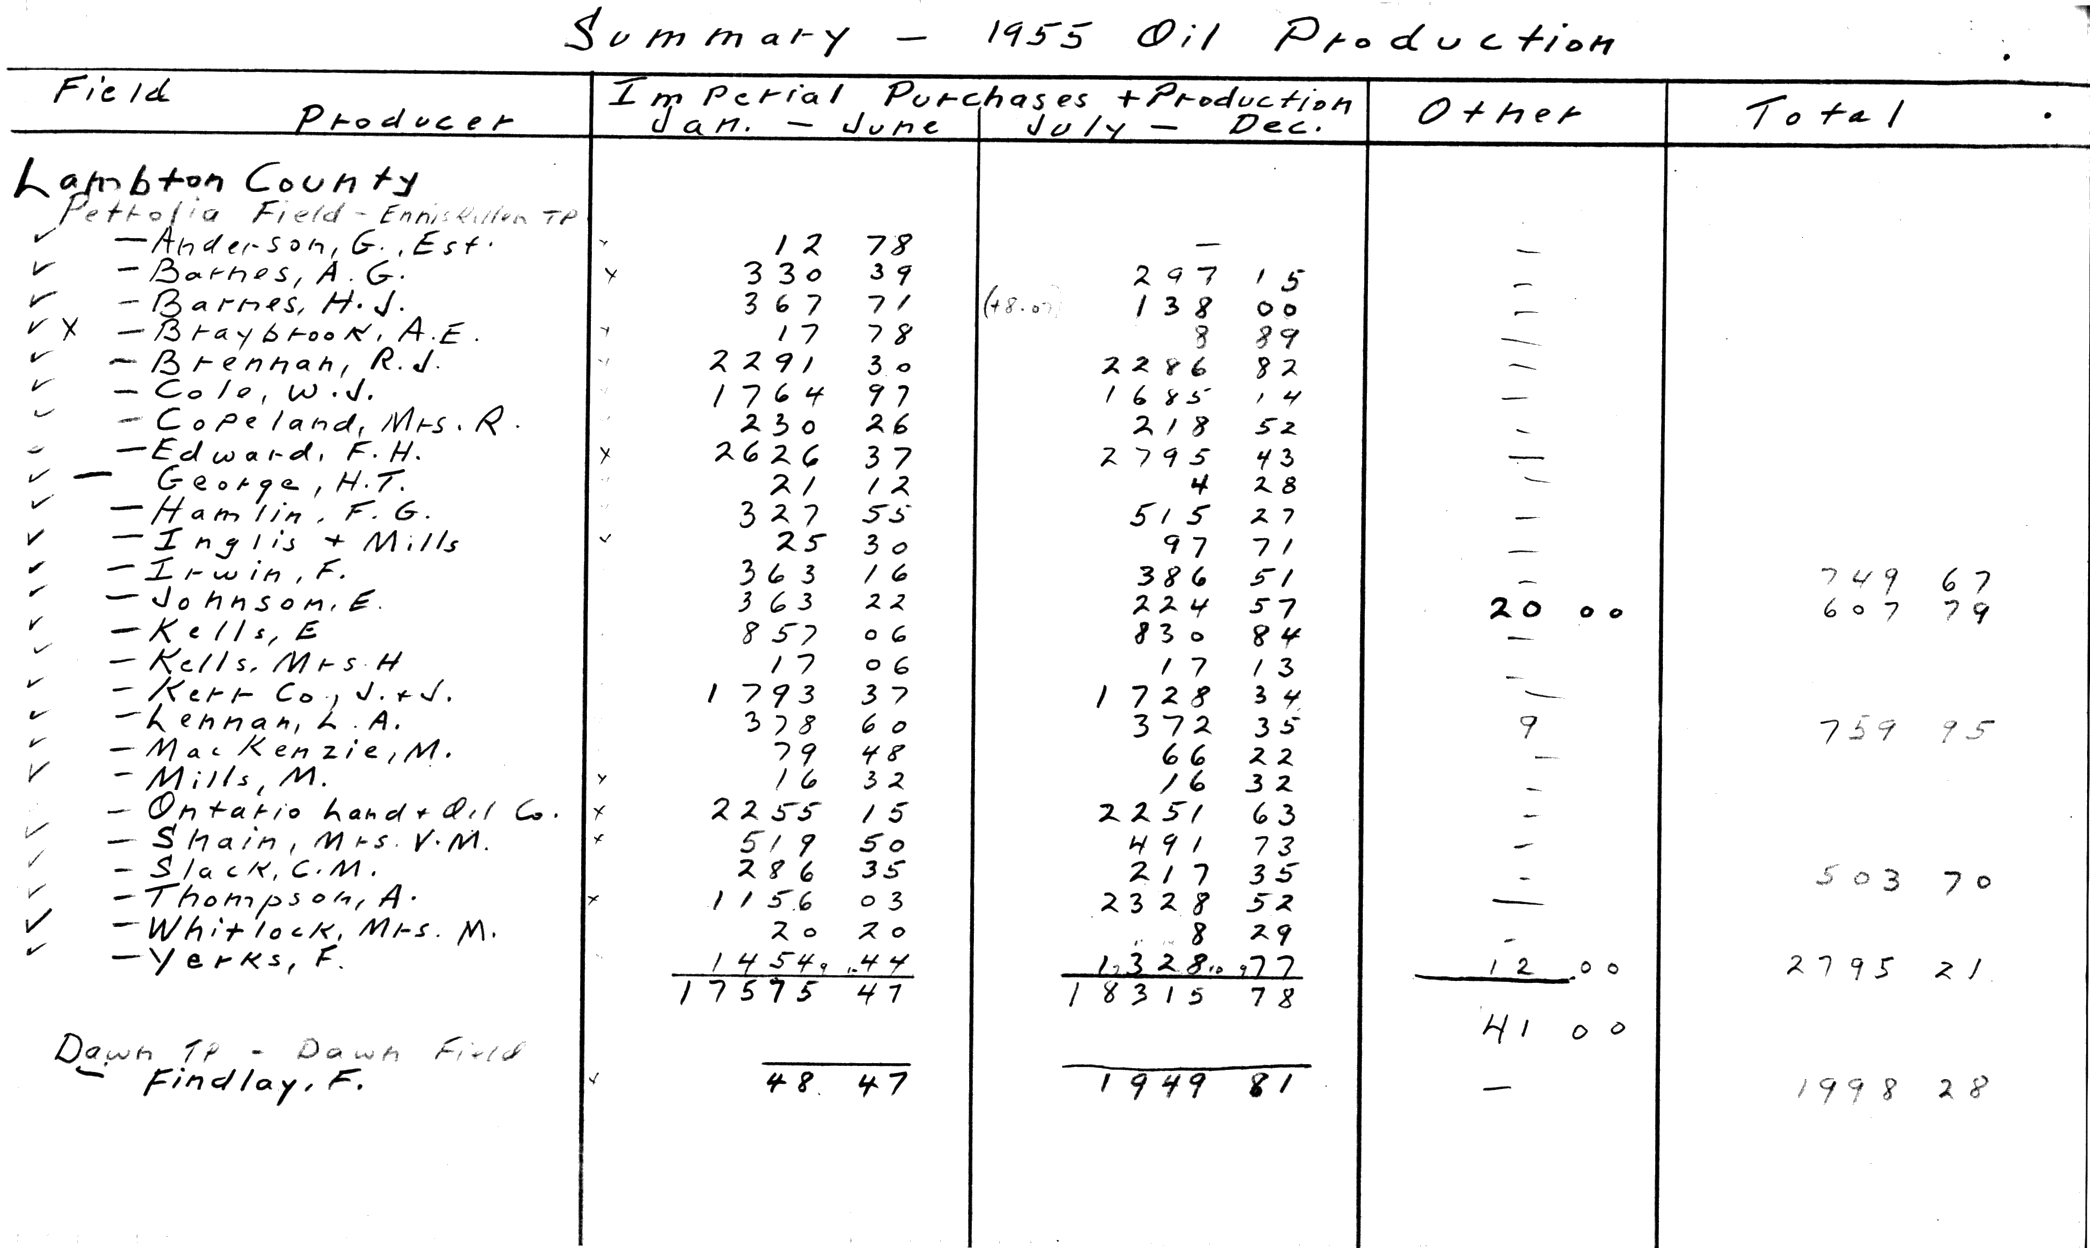 Summary — 1955 Oil Production
Field Producer Imperial Purchases + Production Other Total
Jan. — June July — Dec.
Lambton County
Petrolia Field - Enniskillen TP
✓ — Anderson, G., Est. x 12 78 — —
✓ — Barnes, A. G. x 330 39 297 15 —
✓ — Barnes, H. J. 367 71 (+8.07) 138 00 —
✓ x — Braybrook, A.E. 17 78 8 89 —
✓ — Brennan, R.J. 2291 30 2286 82 —
✓ — Cole, W.J. 1764 97 1685 14 —
✓ — Copeland, Mrs. R. 230 26 218 52 —
✓ — Edward, F.H. x 2626 37 2795 43 —
✓ — George, H.T. 21 12 4 28 —
✓ — Hamlin, F. G. 327 55 515 27 —
✓ — Inglis + Mills ✓ 25 30 97 71 —
✓ — Irwin, F. 363 16 386 51 — 749 67
✓ — Johnson, E. 363 22 224 57 20 00 607 79
✓ — Kells, E 857 06 830 84 —
✓ — Kells, Mrs. H 17 06 17 13 —
✓ — Kerr Co., J. + J. 1793 37 1728 34 —
✓ — Lennan, L. A. 378 60 372 35 9 759 95
✓ — MacKenzie, M. 79 48 66 22 —
✓ — Mills, M. x 16 32 16 32 —
— Ontario Land + Oil Co. x 2255 15 2251 63 —
✓ — Shain, Mrs. V.M. x 519 50 491 73 —
✓ — Slack, C.M. 286 35 217 35 — 503 70
✓ — Thompson, A. x 1156 03 2328 52 —
✓ — Whitlock, Mrs. M. 20 20 8 29 —
✓ — Yerks, F. 1454 44 1328 77 12 00 2795 21
17575 47 18315 78
41 00
Dawn TP - Dawn Field
— Findlay, F. ✓ 48 47 1949 81 — 1998 28